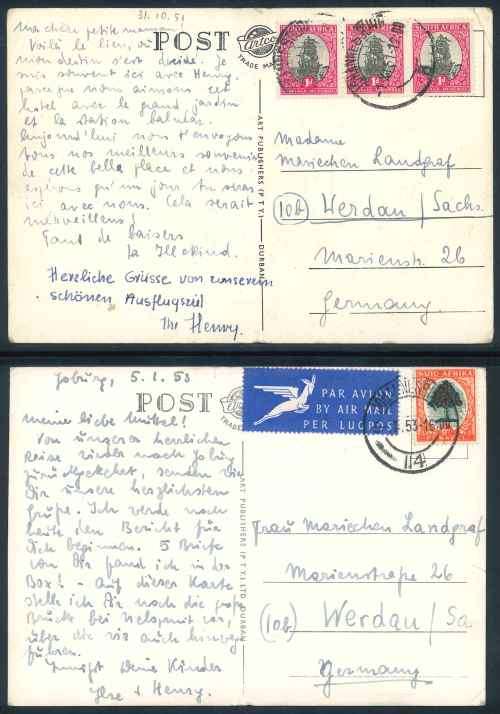 31.10.51
Ma chère petite maman
Voilà le lien, où
mon destin s'est decidé. Je
suis souvent ici avec Henry,
parce que nous aimons cet
hotel avec le grand jardin
et la station
Aujourd'hui nous t'envoyons
tous nos meilleurs souvenirs
de cette belle place et nous
espérons qu'un jour tu seras
ici avec nous. Cela serait
merveilleux!
Tant de baisers
ta Illekind.
Herzliche Grüsse von unserem
schönen Ausflugsziel
Ihr Henry.
POST
Artco
TRADE MARK
ART PUBLISHERS (P T Y.) — DURBAN
SOUTH AFRICA
1D
SOUTH AFRICA
1D
SOUTH AFRICA
1D
Madame
Mariechen Landgraf
(10b) Werdau / Sachs.
Marienstr. 26
Germany
Joburg, 5.1.53
POST
Artco
TRADE
PAR AVION
BY AIR MAIL
PER LUGPOS
SUID-AFRIKA
53
114
meine liebe Mukel!
Von unserer herrlichen
Reise wieder nach Joburg
zurückgekehrt, senden wir
Dir unsere herzlichsten
Grüße. Ich werde noch
heute den Bericht für
Dich beginnen. 5 Briefe
von Dir fand ich in der
Box! - Auf dieser Karte
stelle ich Dir noch die große
Brücke bei vor,
über die wir auch hinweg
fuhren.
Innigst Deine Kinder
Ilse & Henry.
ART PUBLISHERS (P T Y.) LTD. DURBAN
Frau Mariechen Landgraf
Marienstraße 26
(10b) Werdau / Sa
Germany